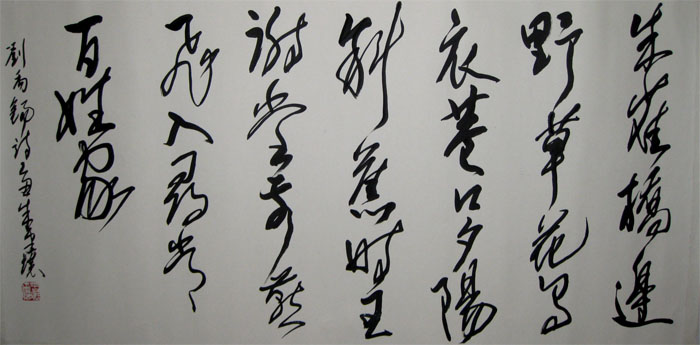 朱雀橋邊
野草花烏
衣巷口夕陽
斜舊時王
謝堂前燕
飛入尋常
百姓家
劉禹錫詩